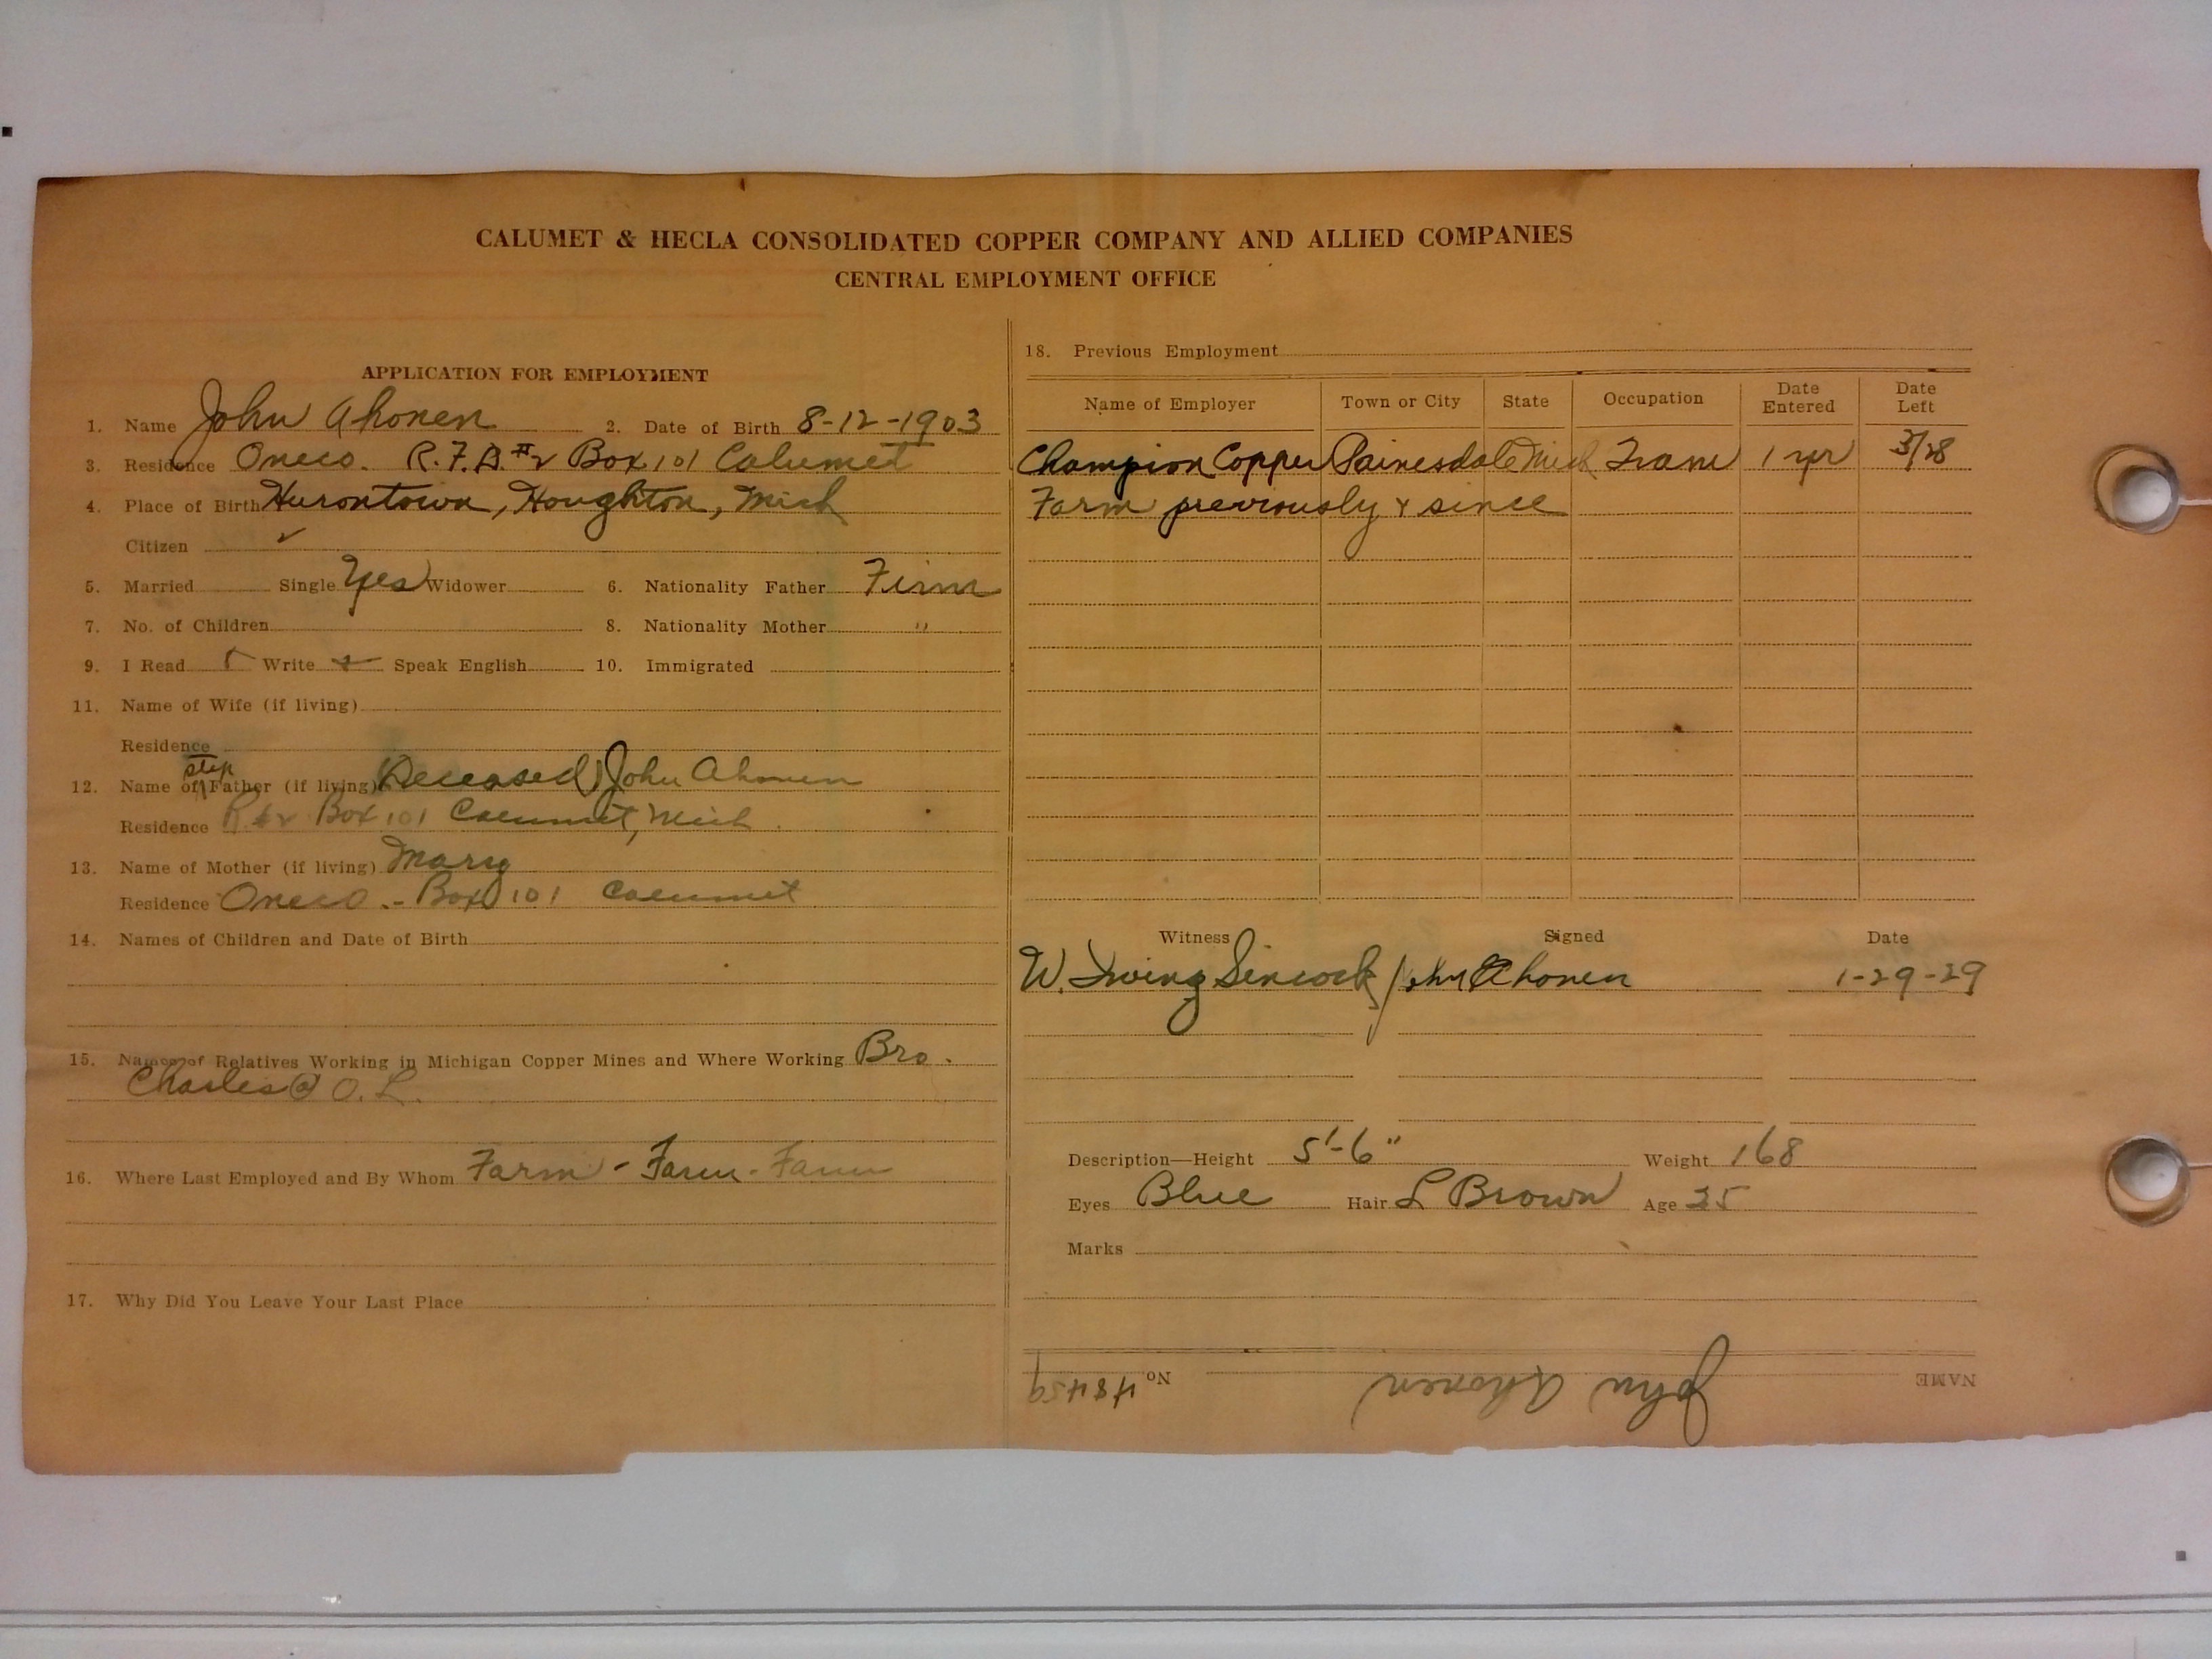 CALUMET & HECLA CONSOLIDATED COPPER COMPANY AND ALLIED COMPANIES
CENTRAL EMPLOYMENT OFFICE
APPLICATION FOR EMPLOYMENT
1. Name John Ahonen 2. Date of Birth 8-12-1903
3. Residence Oneco. R.F.D. #2 Box 101 Calumet
4. Place of Birth Hurontown, Houghton, Mich
Citizen ✓
5. Married Single Yes Widower 6. Nationality Father Finn
7. No. of Children 8. Nationality Mother "
9. I Read ✓ Write ✓ Speak English 10. Immigrated
11. Name of Wife (if living)
Residence
step
12. Name of Father (if living) (Deceased) John Ahonen
Residence R #2 Box 101 Calumet, Mich
13. Name of Mother (if living) Mary
Residence Oneco.- Box 101 Calumet
14. Names of Children and Date of Birth
15. Names of Relatives Working in Michigan Copper Mines and Where Working Bro.
Charles @ O. L.
16. Where Last Employed and By Whom Farm - Farm - Farm
17. Why Did You Leave Your Last Place
18. Previous Employment
Name of Employer Town or City State Occupation Date Entered Date Left
Champion Copper Painesdale Mich Tram 1 yr 3/28
Farm previously & since
Witness Signed Date
W. Irving Sincock John Ahonen 1-29-29
Description—Height 5'-6" Weight 168
Eyes Blue Hair L Brown Age 25
Marks
NAME John Ahonen No. 48459